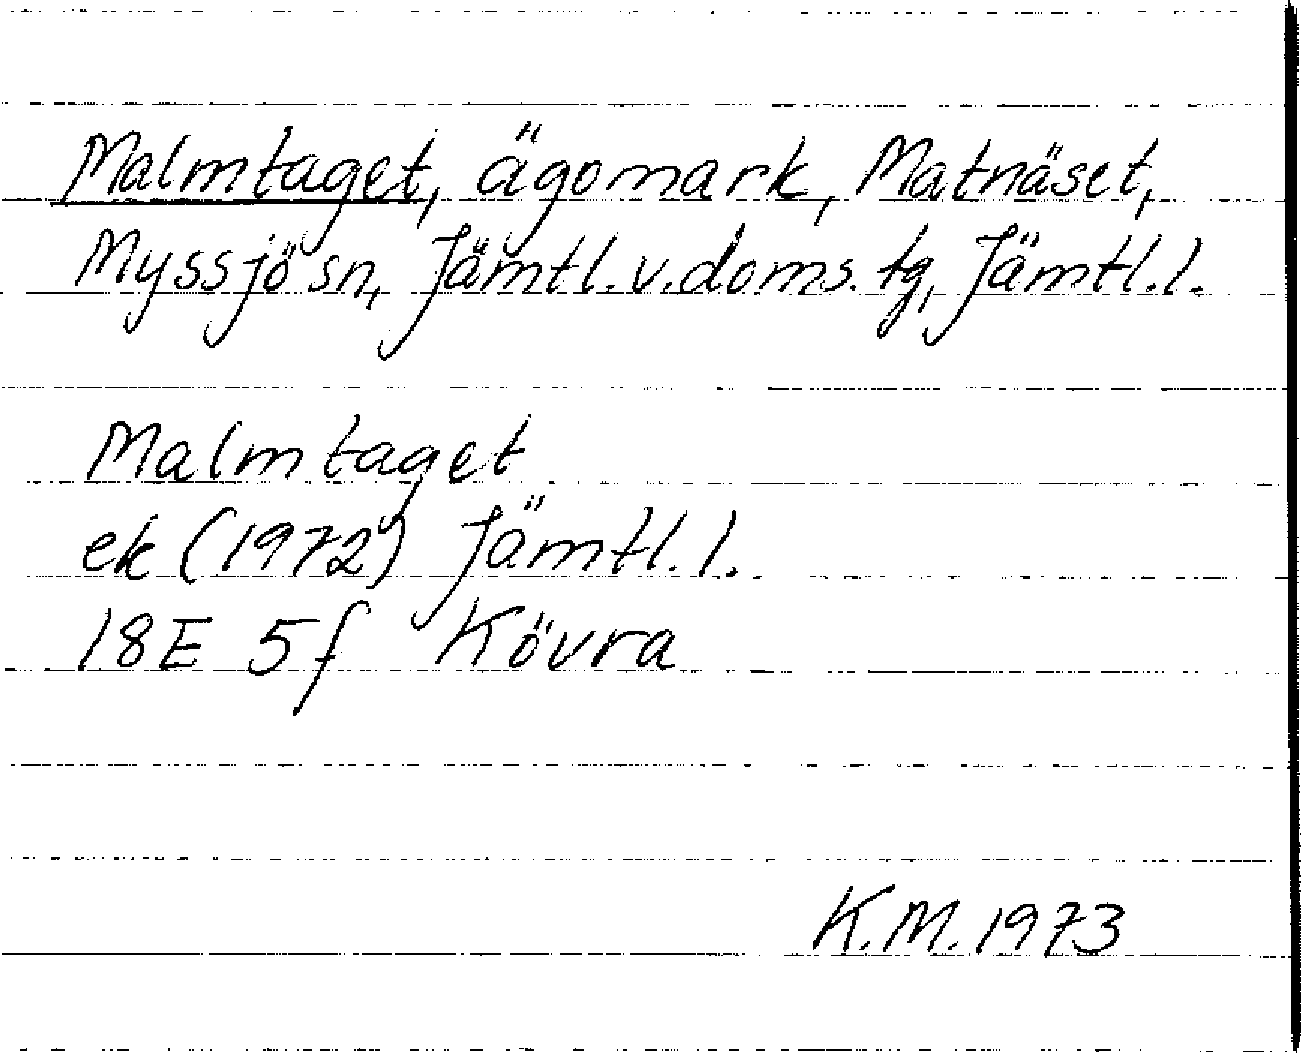 Malmtaget, ägomark, Matnäset,
Myssjö sn, Jämtl.v.doms.tg, Jämtl.l.
Malmtaget
ek (1972) Jämtl.l.
18E 5f Kövra
K.M.1973